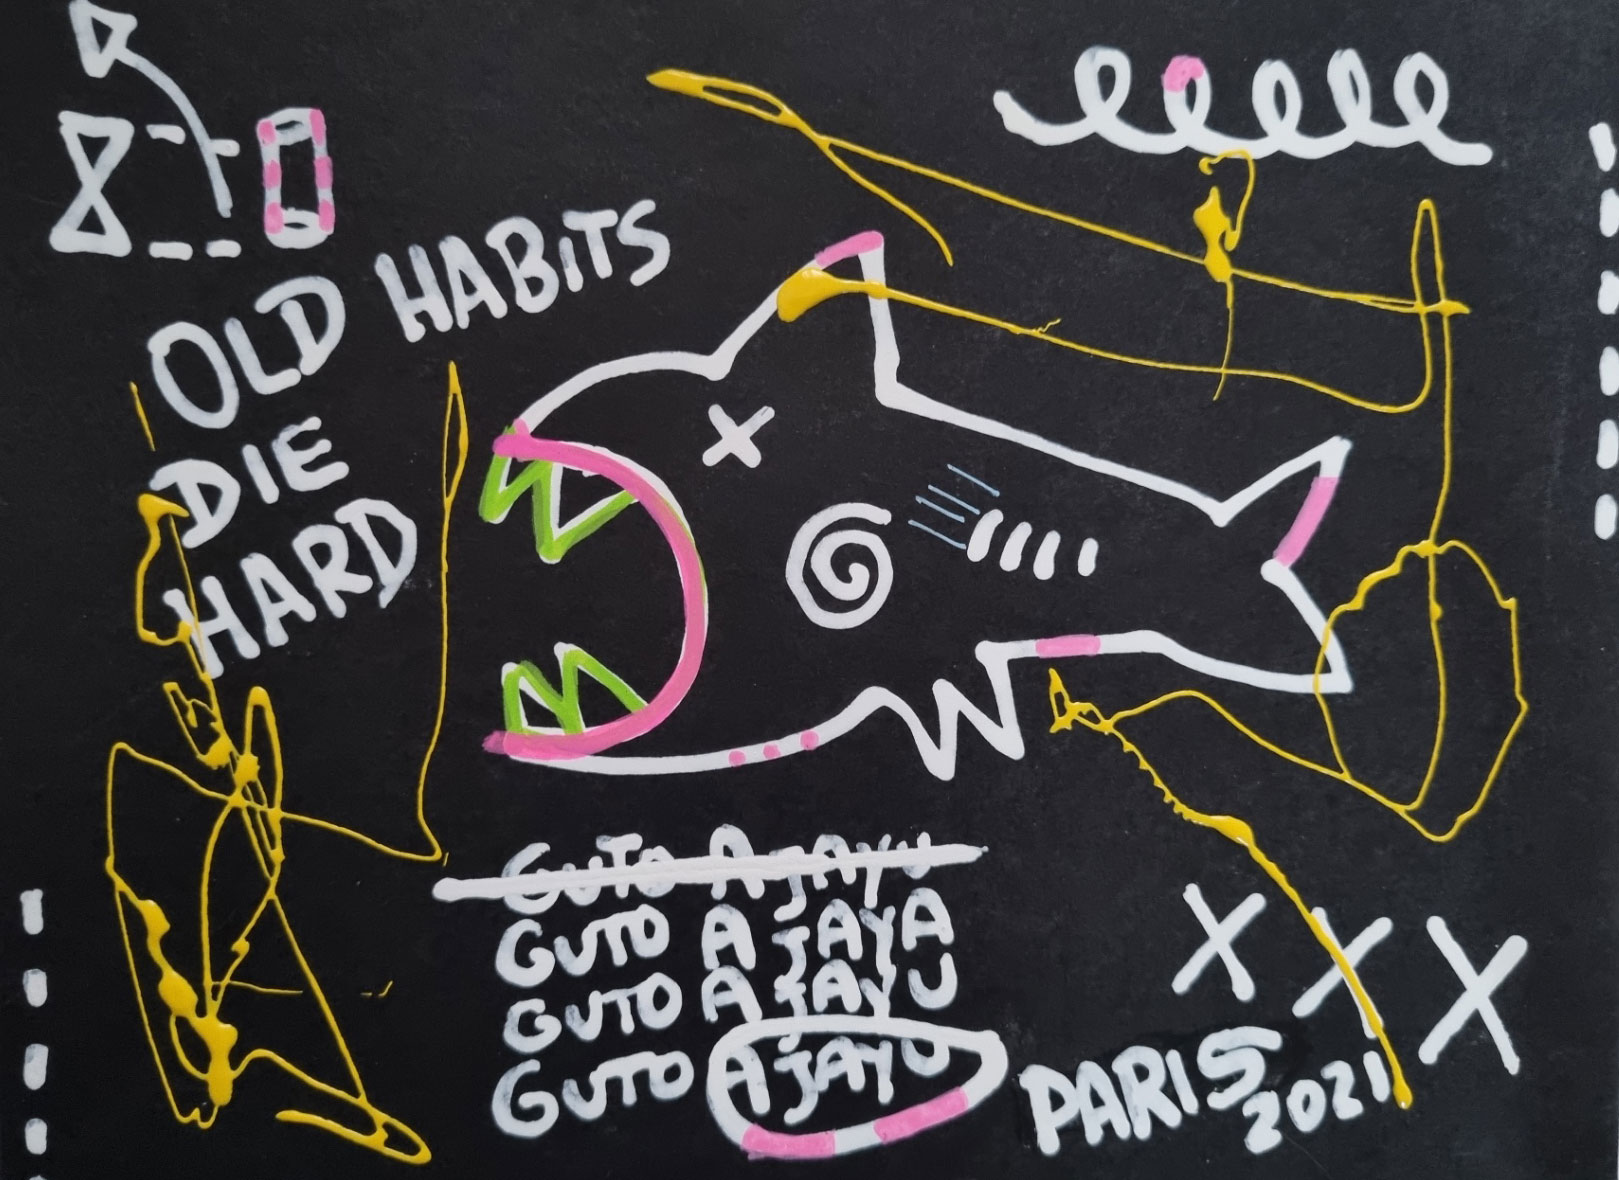 OLD HABiTS
DIE
HARD
GUTO AJAYU
GUTO AJAYA
GUTO AJAYU
GUTO AJAYU
PARIS
2021
X X X